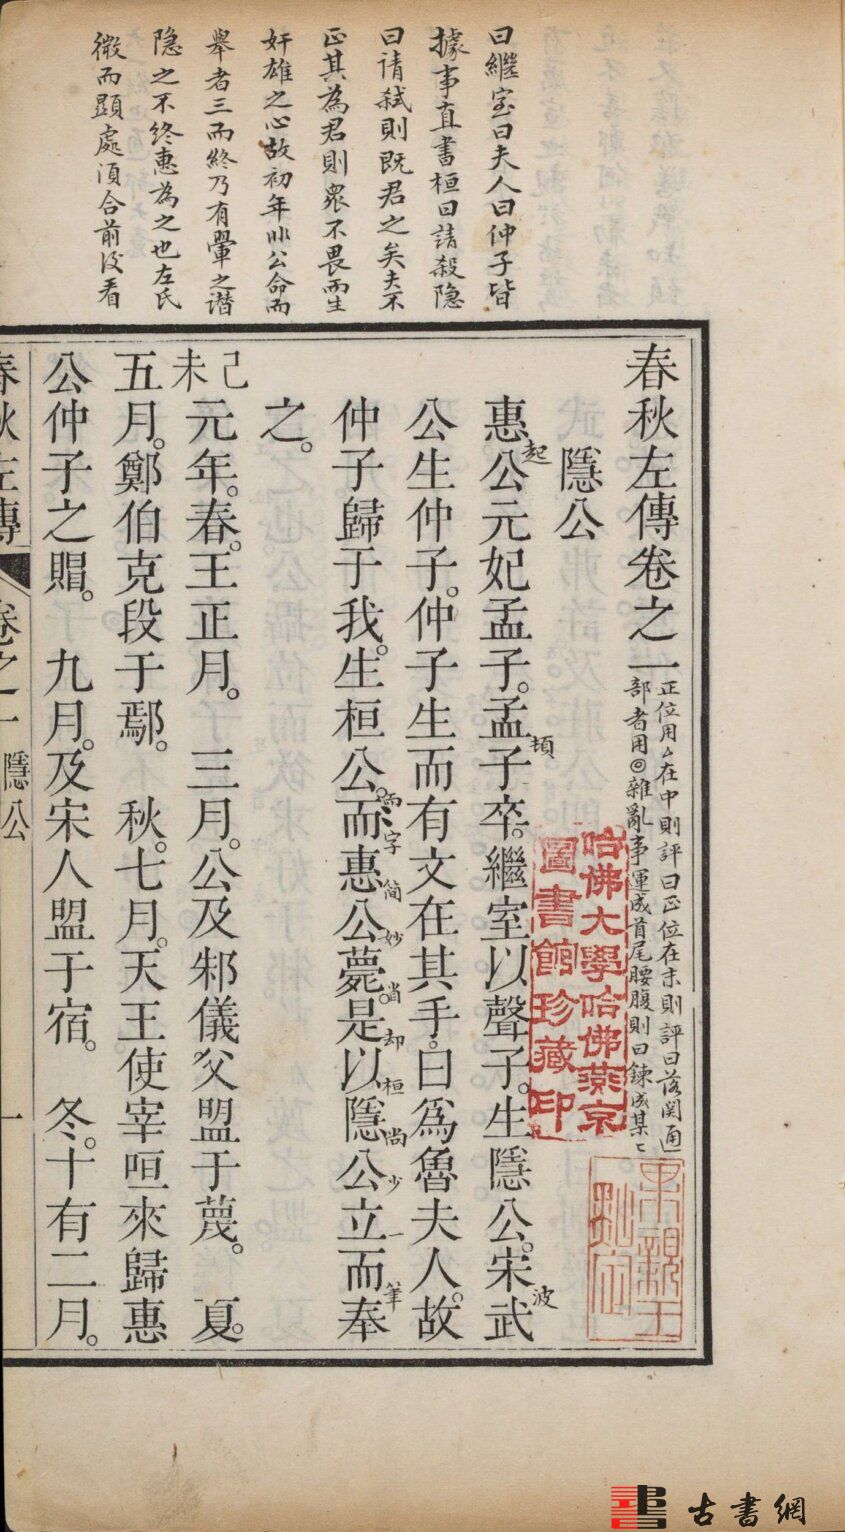 曰繼室曰夫人曰仲子皆
據事直書桓曰請殺隐
曰请弑则既君之矣夫不
正其為君則衆不畏而生
奸雄之心故初年非公命而
舉者三而終乃有翬之谮
隐之不终惠為之也左氏
微而顕處須合前後看
春秋左傳卷之一
正位用△在中則評曰正位在末則評曰落関通
部者用◎雜亂事運成首尾腰腹則曰錬成某〻
隱公
惠公元妃孟子。孟子卒。繼室以聲子。生隱公。宋武
起
頓
波
公生仲子。仲子生而有文在其手。曰爲魯夫人。故
仲子歸于我。生桓公。而惠公薨。是以隱公立而奉
而字简妙省却桓尚少一筆
之。
己未
元年。春。王正月。 三月。公及邾儀父盟于蔑。 夏。
五月。鄭伯克段于鄢。 秋。七月。天王使宰咺來歸惠
公仲子之賵。 九月。及宋人盟于宿。 冬。十有二月。
春秋左傳 卷之一 隱公 一
哈佛大學哈佛燕京
圖書館珍藏印
古書網